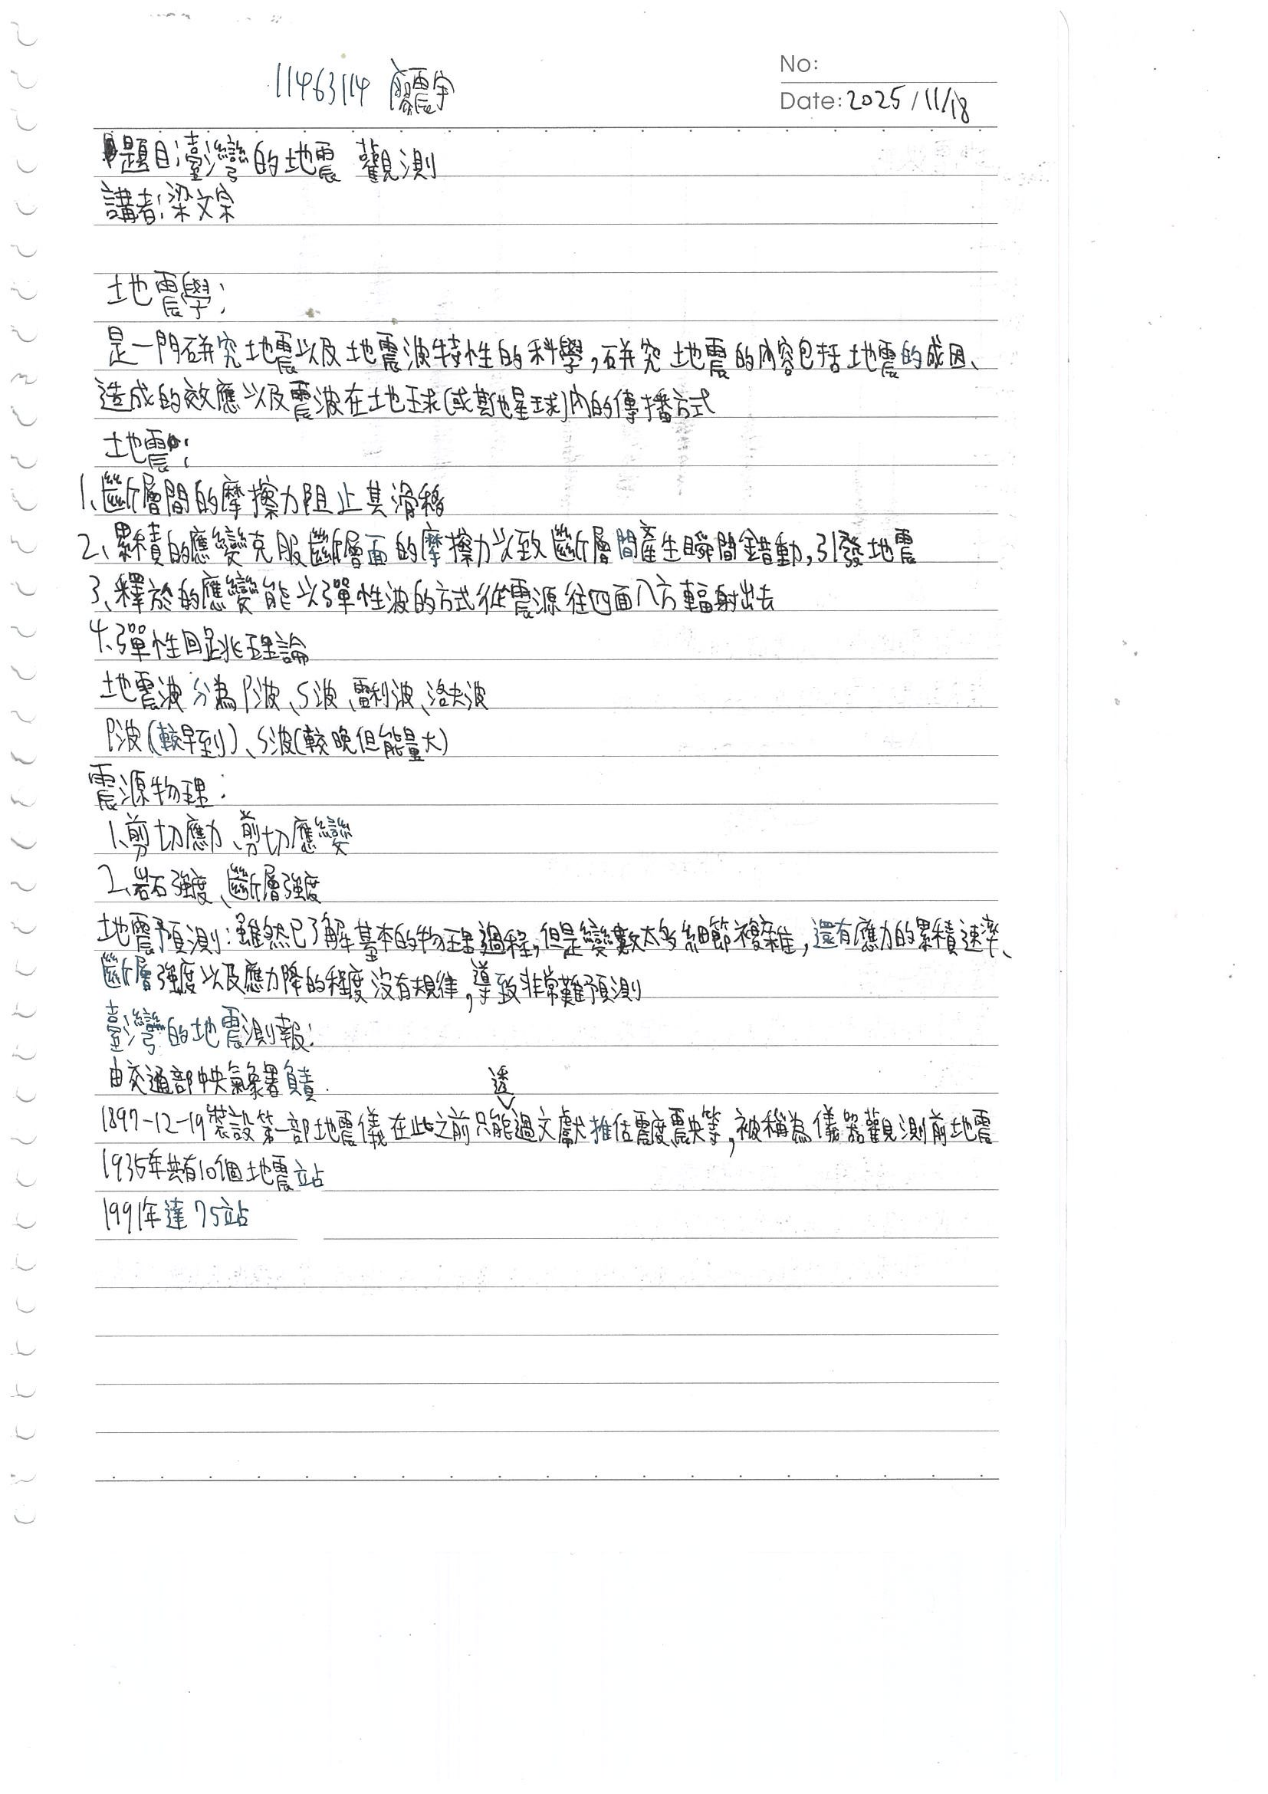 11463114 廖震宇
No:
Date: 2025/11/18
題目:臺灣的地震觀測
講者:梁文宗
地震學:
是一門研究地震以及地震波特性的科學,研究地震的內容包括地震的成因、
造成的效應以及震波在地球(或其他星球)內的傳播方式
地震:
1、斷層間的摩擦力阻止其滑移
2、累積的應變克服斷層面的摩擦力以致斷層間產生瞬間錯動,引發地震
3、釋放的應變能以彈性波的方式從震源往四面八方輻射出去
4、彈性回跳理論
地震波分為P波、S波、雷利波、洛夫波
P波(較早到)、S波(較晚但能量大)
震源物理:
1、剪切應力、剪切應變
2、岩石強度、斷層強度
地震預測:雖然已了解基本的物理過程,但是變數太多細節複雜,還有應力的累積速率、
斷層強度以及應力降的程度沒有規律,導致非常難預測
臺灣的地震測報:
由交通部中央氣象署負責.
1897-12-19裝設第一部地震儀在此之前只能透過文獻推估震度震央等,被稱為儀器觀測前地震
1935年共有10個地震站
1991年達75站